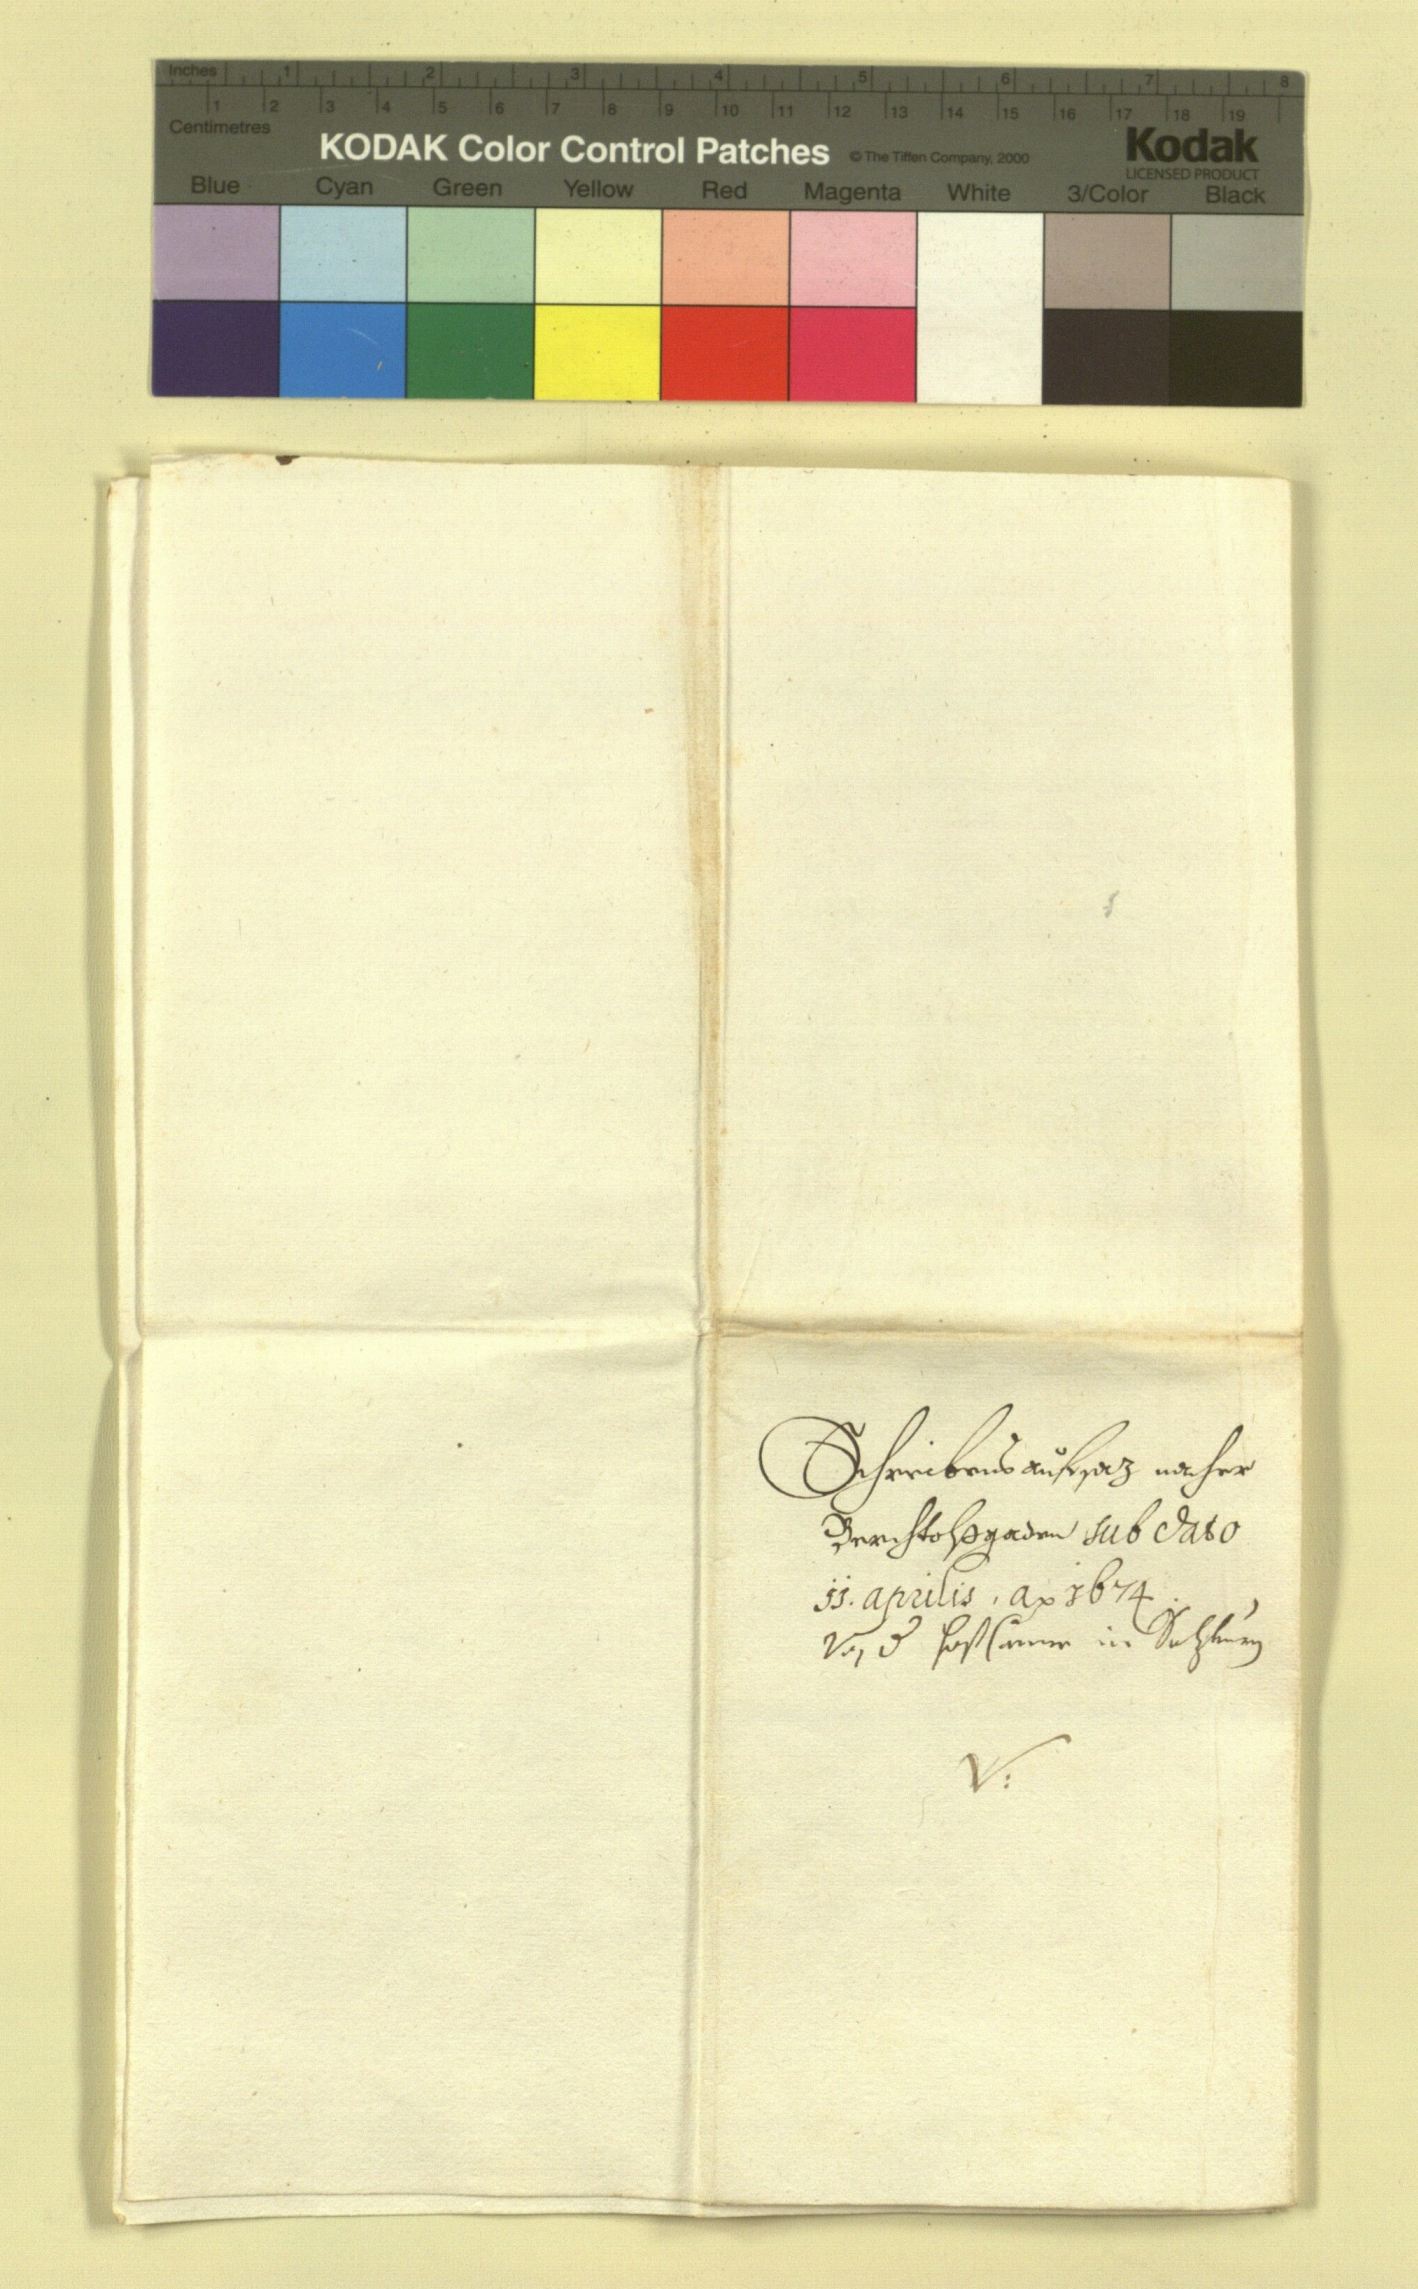 Inches 1 2 3 4 5 6 7 8
1 2 3 4 5 6 7 8 9 10 11 12 13 14 15 16 17 18 19
Centimetres
KODAK Color Control Patches © The Tiffen Company, 2000 Kodak
LICENSED PRODUCT
Blue Cyan Green Yellow Red Magenta White 3/Color Black
Schreibens aufsaz nacher
Berchtolsgaden sub dato
11. aprilis. ao 1674.
in Salzburg
V: